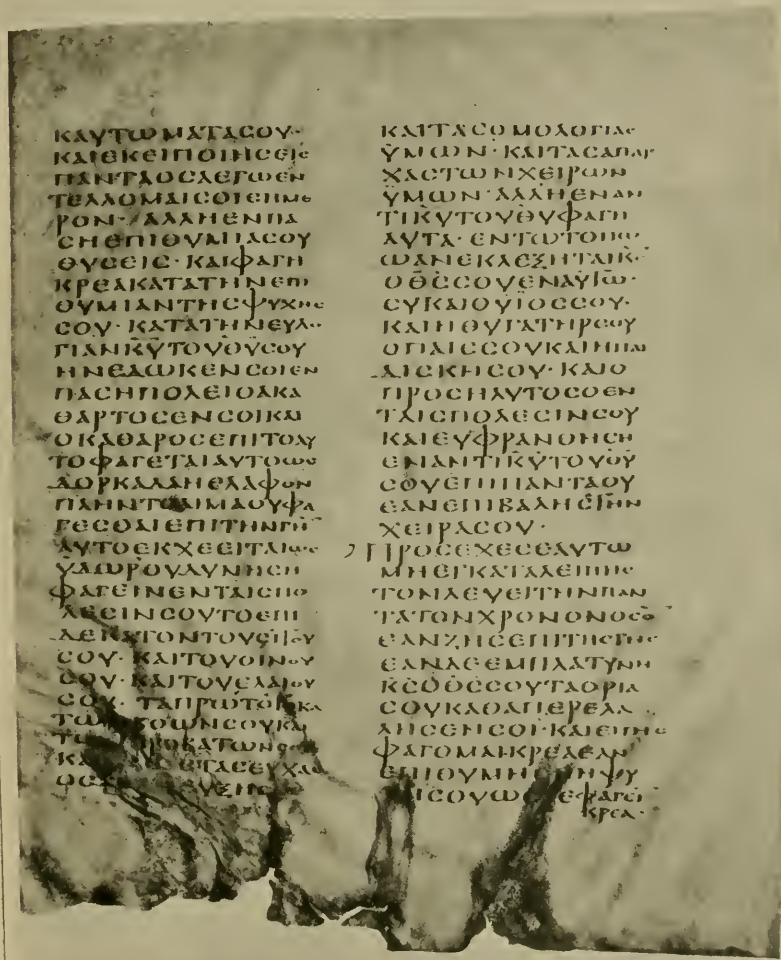 ΚΑΥΤΩΜΑΤΑϹΟΥ·
ΚΑΙΕΚΕΙΠΟΙΗϹΕΙϹ
ΠΑΝΤΑΟϹΑΕΓΩΕΝ
ΤΕΛΛΟΜΑΙϹΟΙϹΗΜΕ
ΡΟΝ·/ΑΛΛΗΕΝΠΑ
ϹΗΕΠΙΘΥΜΙΑϹΟΥ
ΘΥϹΕΙϹ·ΚΑΙΦΑΓΗ
ΚΡΕΑΚΑΤΑΤΗΝΕΠΙ
ΘΥΜΙΑΝΤΗϹΨΥΧΗϹ
ϹΟΥ·ΚΑΤΑΤΗΝΕΥΛΟ
ΓΙΑΝΚ̅Υ̅ΤΟΥΘ̅Υ̅ϹΟΥ
ΗΝΕΔΩΚΕΝϹΟΙΕΝ
ΠΑϹΗΠΟΛΕΙΟΑΚΑ
ΘΑΡΤΟϹΕΝϹΟΙΚΑΙ
ΟΚΑΘΑΡΟϹΕΠΙΤΟΑΥ
ΤΟΦΑΓΕΤΑΙΑΥΤΟΩϹ
ΔΟΡΚΑΔΑΗΕΛΑΦΟΝ
ΠΛΗΝΤΟΑΙΜΑΟΥΦΑ
ΓΕϹΘΑΙΕΠΙΤΗΝΓΗ̅
ΑΥΤΟΕΚΧΕΕΙΤΑΙΩϹ
ΫΔΩΡΟΥΔΥΝΗϹΗ
ΦΑΓΕΙΝΕΝΤΑΙϹΠΟ
ΛΕϹΙΝϹΟΥΤΟΕΠΙ
ΔΕΚΑΤΟΝΤΟΥϹΙΤΟΥ
ϹΟΥ·ΚΑΙΤΟΥΟΙΝΟΥ
ϹΟΥ·ΚΑΙΤΟΥΕΛΑΙΟΥ
ϹΟΥ·ΤΑΠΡΩΤΟΤΟΚΑ
ΤΩ ΤΟΩΝϹΟΥΚΑΙ
ΤΩ ΡΟΒΑΤΩΝϹΟΥ
ΚΑ ΕΤΑϹΕΥΧΑϹ
ΟϹ ΥΞΗϹ
ΚΑΙΤΑϹΟΜΟΛΟΓΙΑϹ
ΫΜΩΝ·ΚΑΙΤΑϹΑΠΑΡ
ΧΑϹΤΩΝΧΕΙΡΩΝ
ΫΜΩΝ·ΑΛΛΗΕΝΑΝ
ΤΙΚ̅Υ̅ΤΟΥΘ̅Υ̅ΦΑΓΗ
ΑΥΤΑ·ΕΝΤΩΤΟΠΩ
ΩΑΝΕΚΛΕΞΗΤΑΙΚ̅Ϲ̅
ΟΘ̅Ϲ̅ϹΟΥΕΝΑΥΤΩ·
ϹΥΚΑΙΟΥΪΟϹϹΟΥ·
ΚΑΙΗΘΥΓΑΤΗΡϹΟΥ
ΟΠΑΙϹϹΟΥΚΑΙΗΠΑΙ
ΔΙϹΚΗϹΟΥ·ΚΑΙΟ
ΠΡΟϹΗΛΥΤΟϹΟΕΝ
ΤΑΙϹΠΟΛΕϹΙΝϹΟΥ
ΚΑΙΕΥΦΡΑΝΘΗϹΗ
ΕΝΑΝΤΙΚ̅Υ̅ΤΟΥΘ̅Υ̅
ϹΟΥΕΠΙΠΑΝΤΑΟΥ
ΕΑΝΕΠΙΒΑΛΗϹΤΗΝ
ΧΕΙΡΑϹΟΥ·
ΠΡΟϹΕΧΕϹΕΑΥΤΩ
ΜΗΕΓΚΑΤΑΛΕΙΠΗϹ
ΤΟΝΛΕΥΕΙΤΗΝΠΑΝ
ΤΑΤΟΝΧΡΟΝΟΝΟϹΟ̅
ΕΑΝΖΗϹΕΠΙΤΗϹΓΗϹ
ΕΑΝΔΕΕΜΠΛΑΤΥΝΗ
Κ̅Ϲ̅ΟΘ̅Ϲ̅ϹΟΥΤΑΟΡΙΑ
ϹΟΥΚΑΘΑΠΕΡΕΛΑ
ΛΗϹΕΝϹΟΙ·ΚΑΙΕΠΗϹ
ΦΑΓΟΜΑΙΚΡΕΑΕΑΝ
ΕΠΙΘΥΜΗϹΗΗΨΥ
ΗϹΟΥΩϹ ΕΦΑΓΕΙ
ΚΡΕΑ·